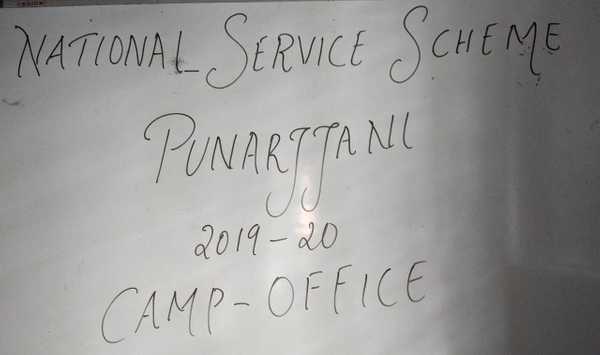 NATIONAL SERVICE SCHEME
PUNARJJANI
2019-20
CAMP-OFFICE